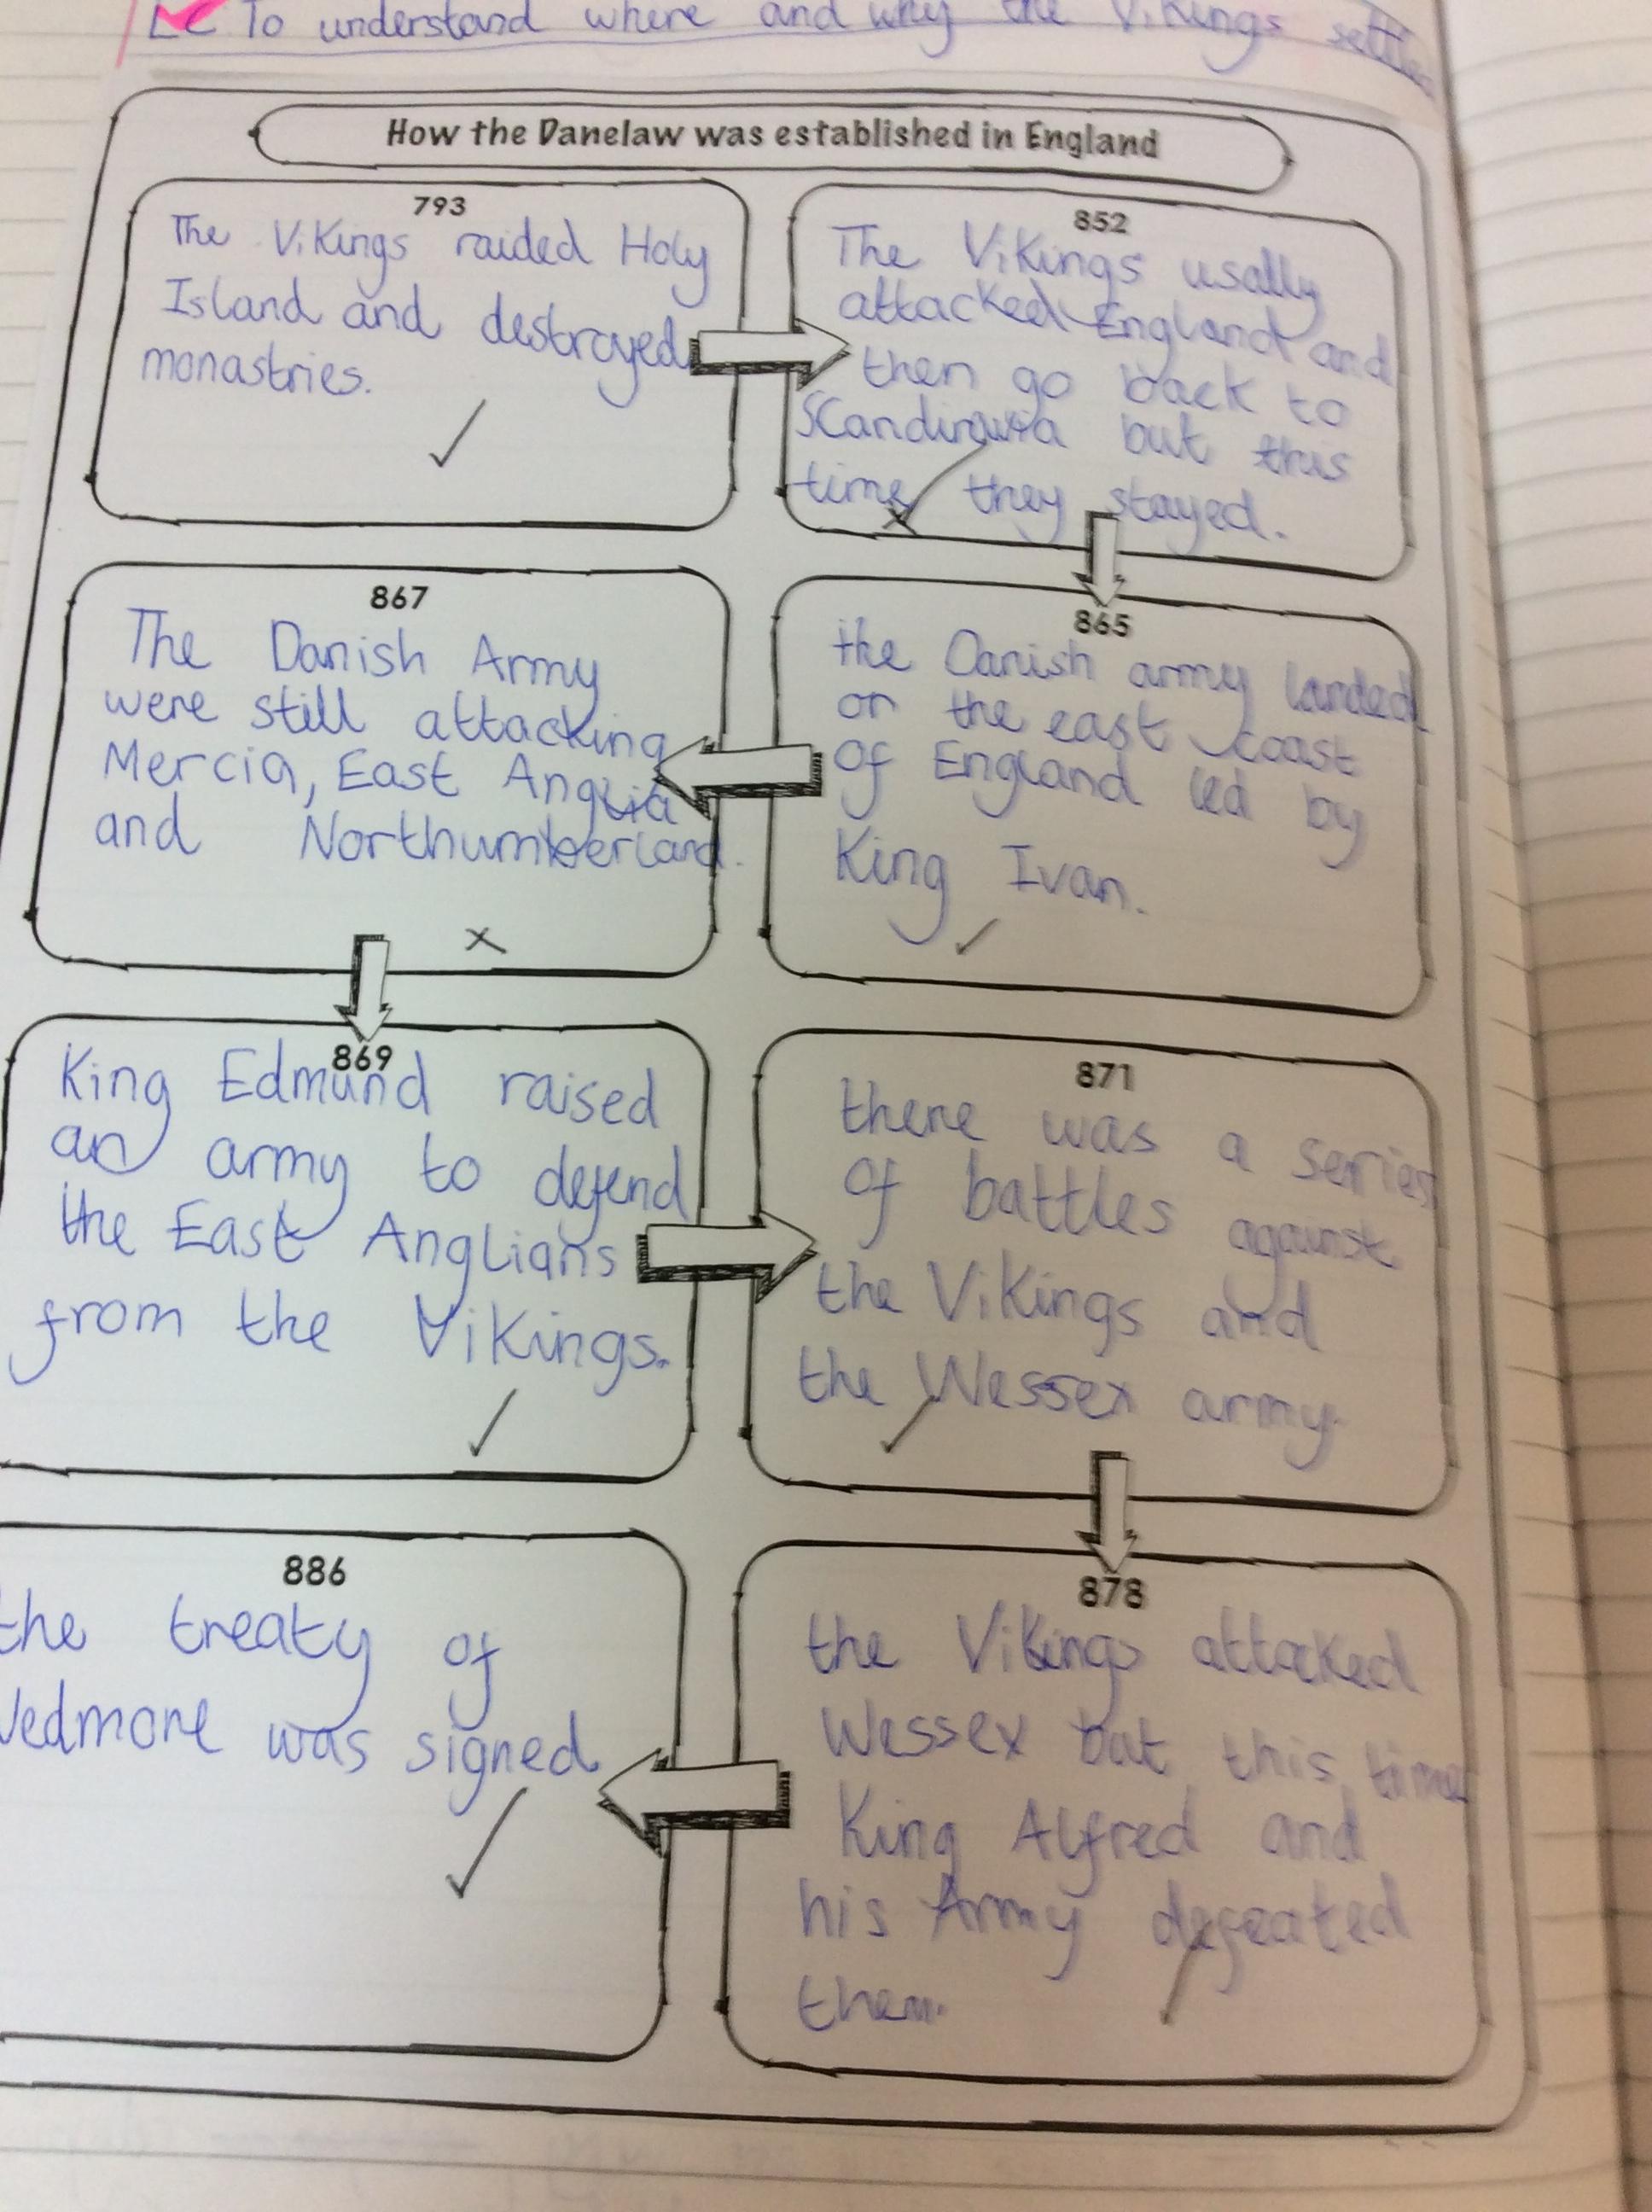 LC To understand where and why the Vikings settled
How the Danelaw was established in England
793
The Vikings raided Holy
Island and destroyed
monastries.
852
The Vikings usally
attacked England and
then go back to
Scandinavia but this
time they stayed.
865
the Danish army landed
on the east coast
of England led by
King Ivan.
867
The Danish Army
were still attacking
Mercia, East Anglia
and Northumberland.
869
King Edmund raised
an army to defend
the East Anglians
from the Vikings.
871
there was a series
of battles against
the Vikings and
the Wessex army.
878
the Vikings attacked
Wessex but this time
King Alfred and
his Army defeated
them.
886
the treaty of
Wedmore was signed